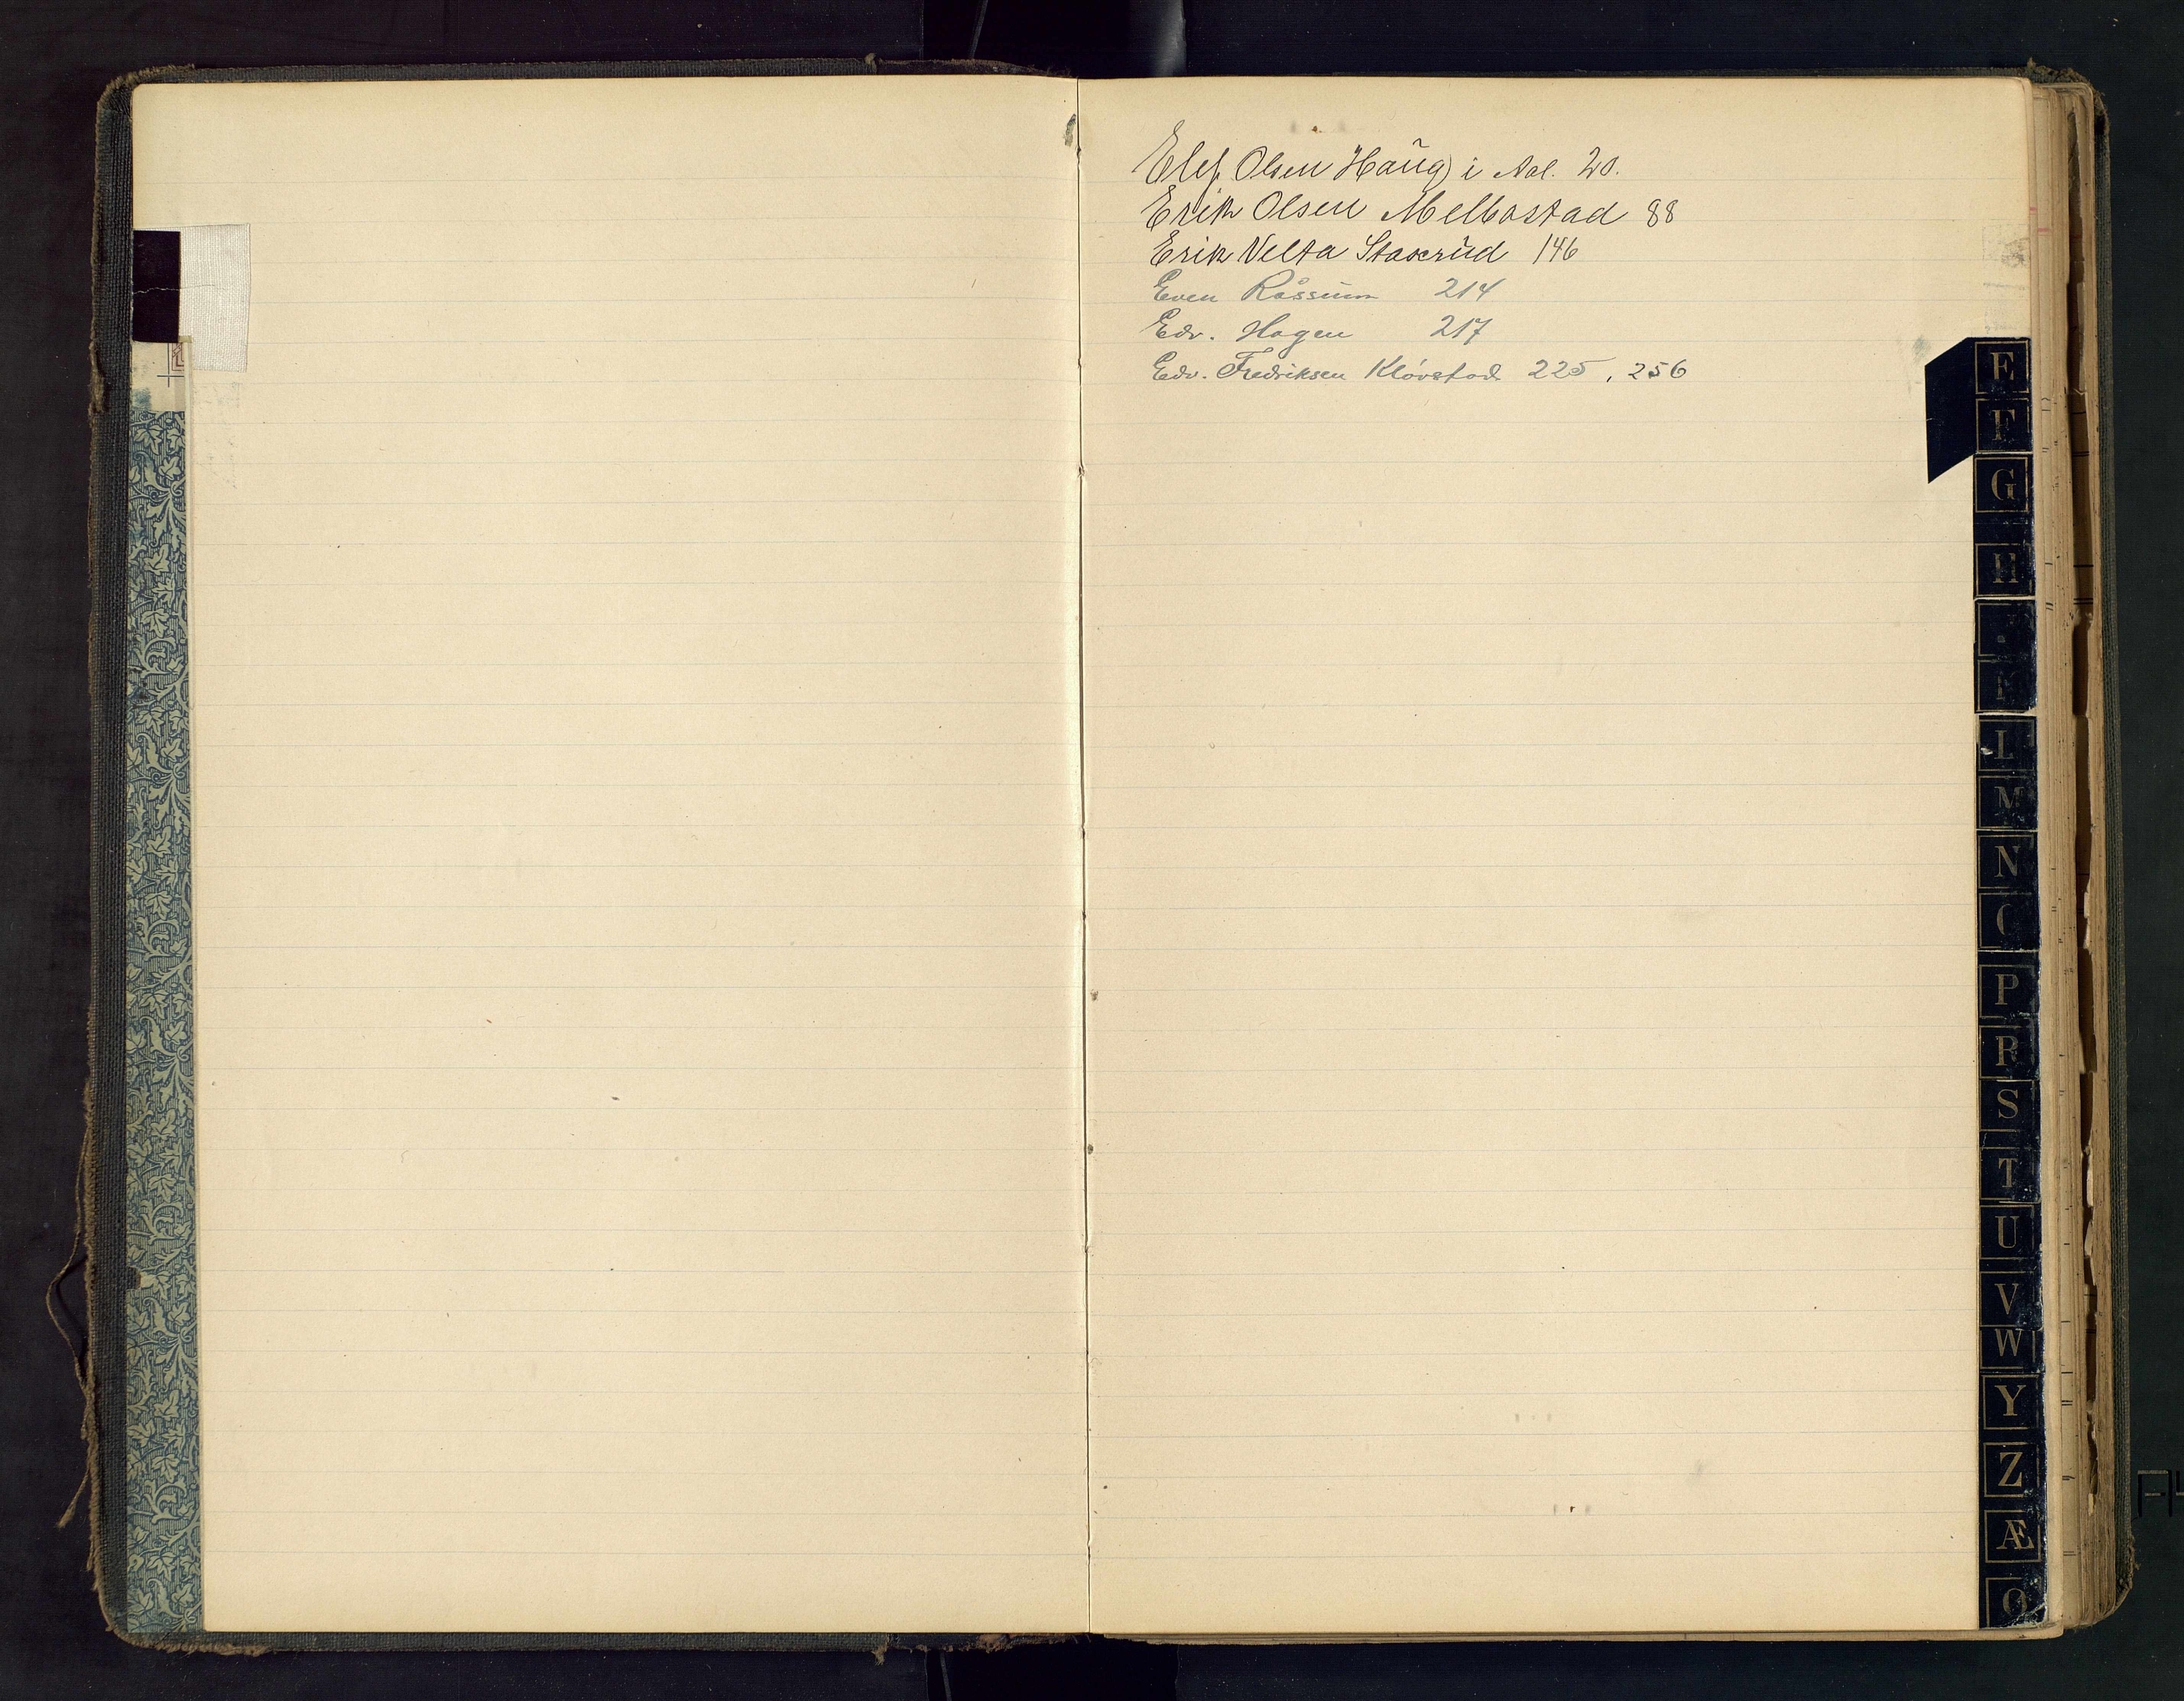 Elef Olsen Haug i Aal. 20.
Erik Olsen Melbostad 88
Erik Velta Staxrud 146
Even Råssum 214
Edv. Hagen 217
Edv. Fredriksen Kløvstad 225, 256
E
F
G
H
K
L
M
N
O
P
R
S
T
U
V
W
Y
Z
Æ
Ø